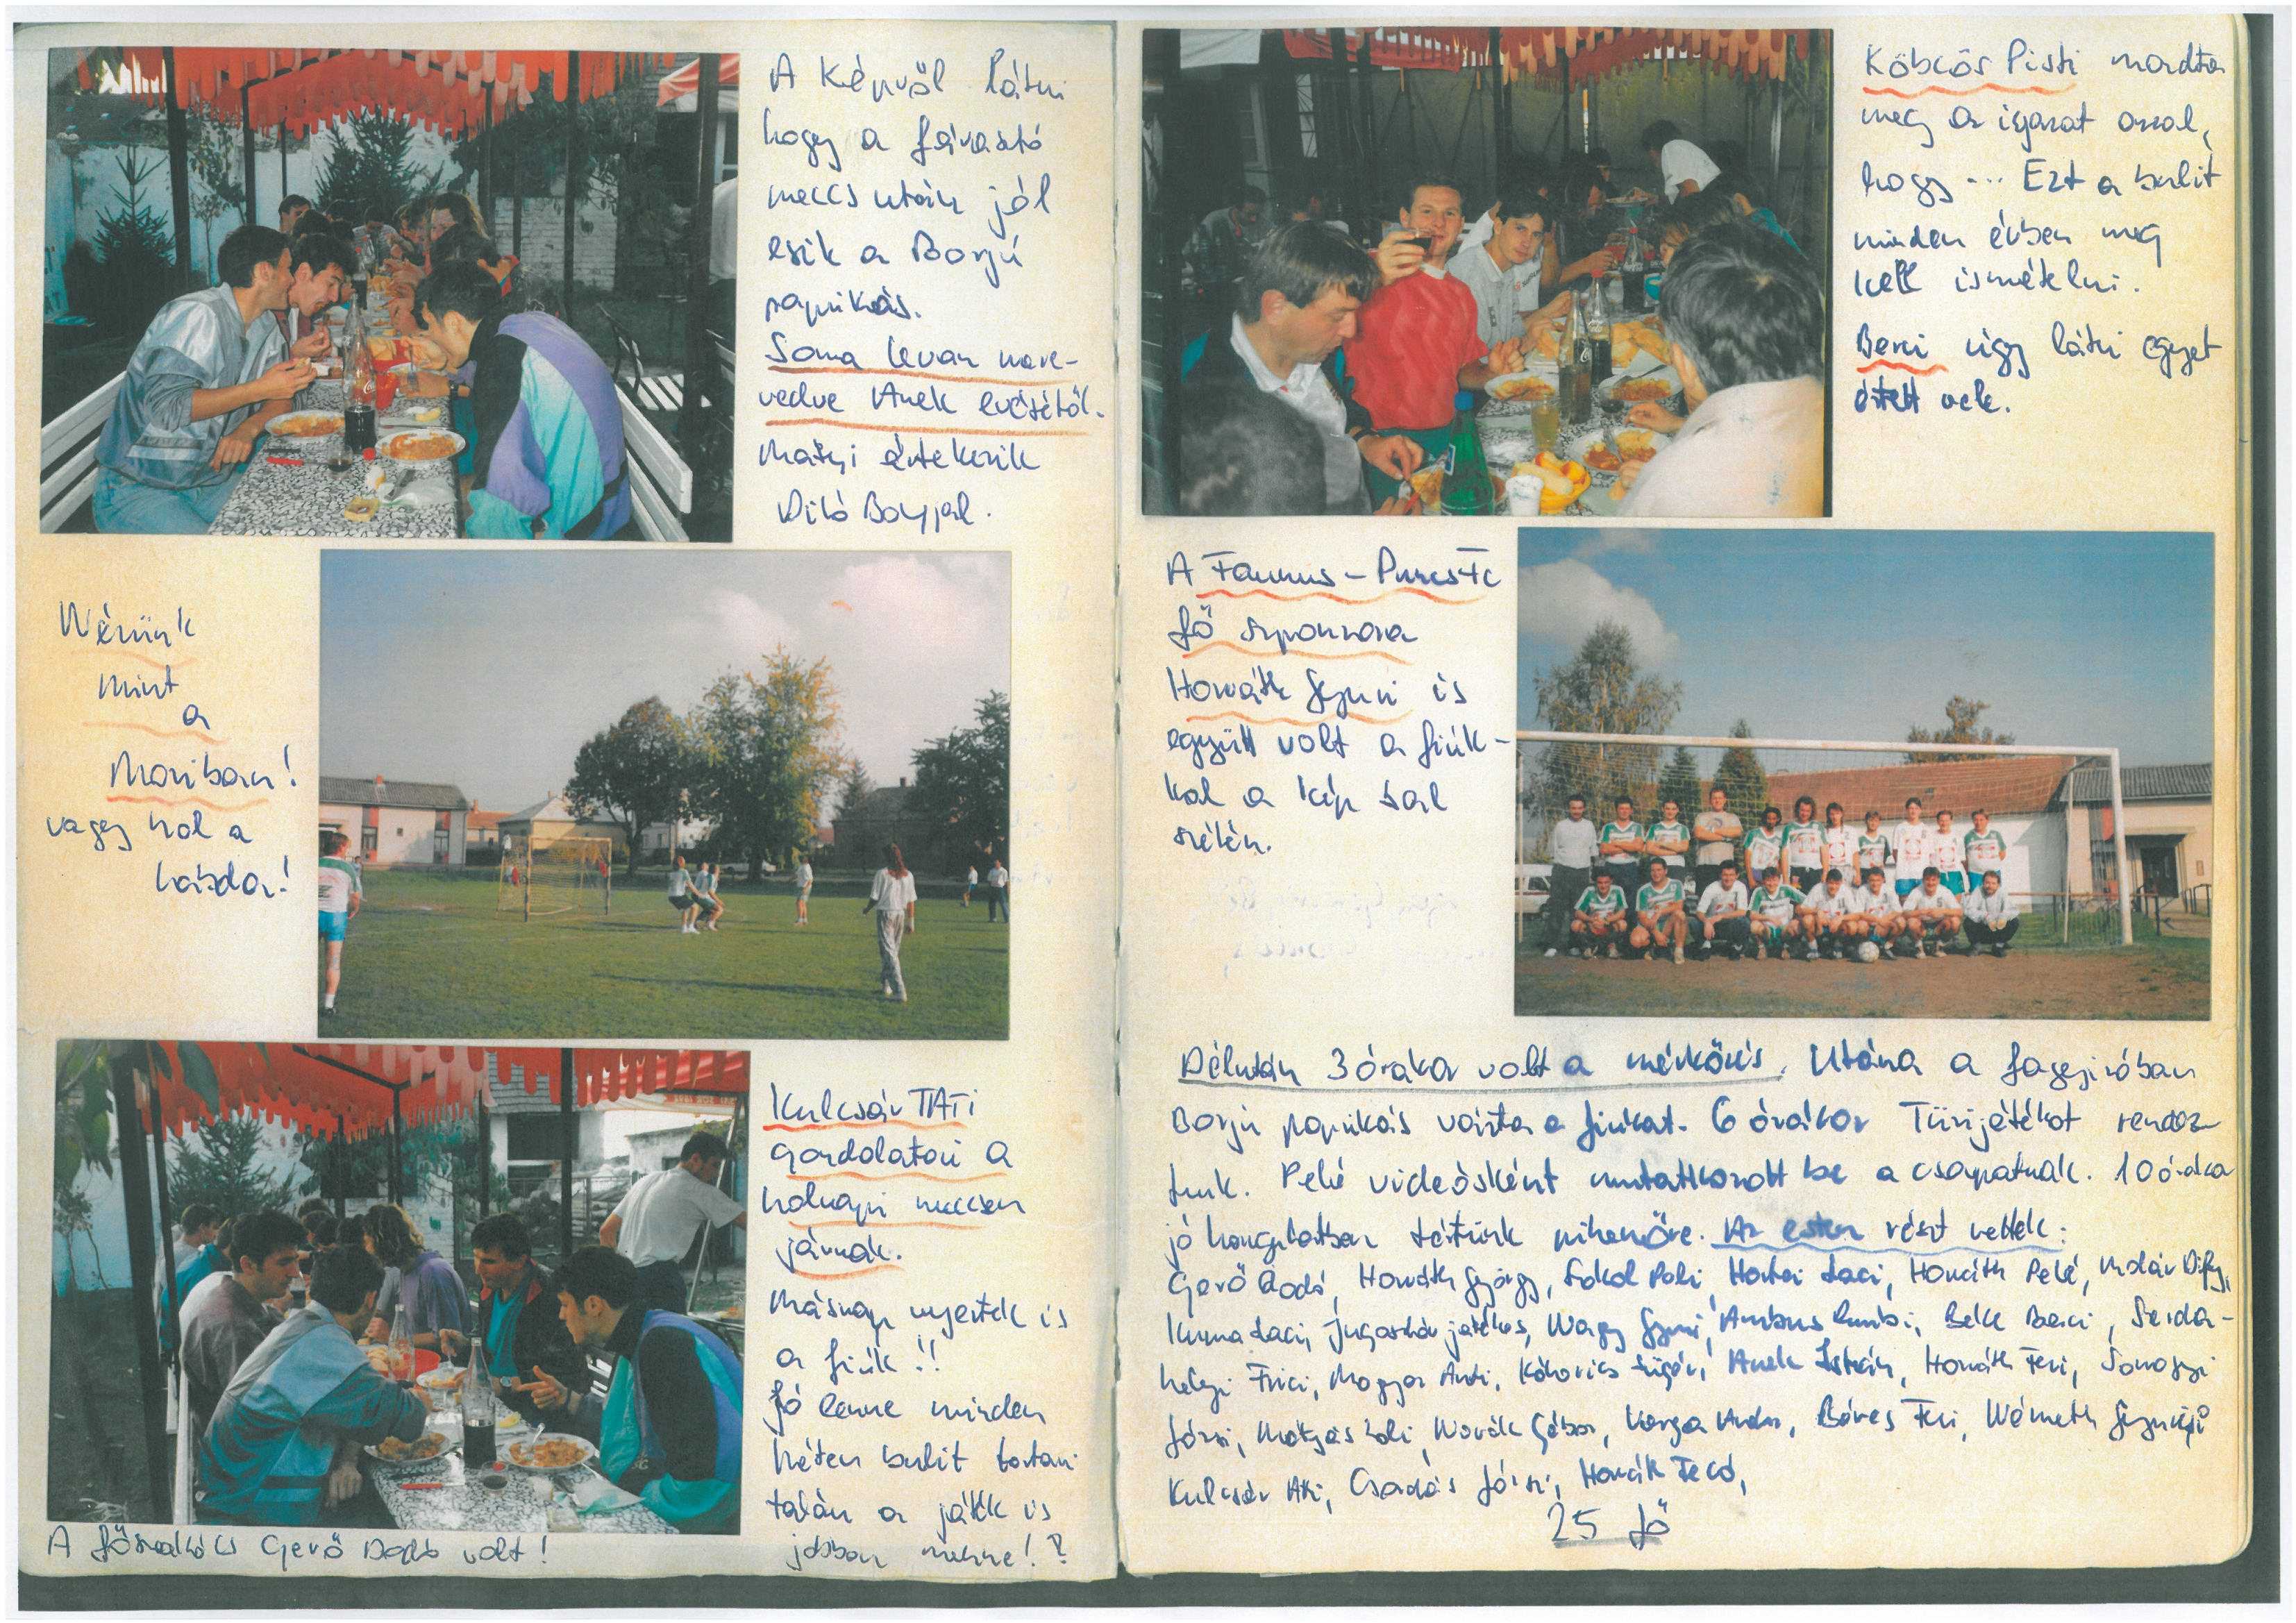 A Képről látni
hogy a fárasztó
meccs után jól
esik a Borjú
paprikás.
Soma levan mere-
vedve Anek evésétől.
Matyi értekezik
Diló Bogyjal.
Nézünk
mint a
Moziban!
vagy hol a
labda!
Kulcsár TATi
gondolatai a
holnapi meccsen
járnak.
Másnap nyertek is
a fiúk!!
Jó lenne minden
héten bulit tartani
talán a játék is
jobban menne!?
A főszakács Gerő Dodó volt!
Köbcös Pisti mondta
meg a igazat azzal,
hogy ... Ezt a bulit
minden évben meg
kell ismételni.
Berci úgy látni egyet
értett vele.
A Taurus - Purcs Fc
fő szponzora
Horváth Gyuri is
együtt volt a fiúk-
kal a kép bal
szélén.
Délután 3 órakor volt a mérkőzés. Utána a fagyizóban
Borjú paprikás várta a fiúkat. 6 órakor Tüzijátékot rendez-
tünk. Pelé videósként mutatkozott be a csapatnak. 10 órakor
jó hangulatban tértünk pihenőre. Az esten részt vettek:
Gerő Dodó, Horváth György, Horváth Pelé,
Kuma Laci, Jugoszláv játékos, Nagy Gyuri, Ambrus Rumbi, Belk Berci, Szerda-
helyi Frici, Magyar Anti, Anek István, Horváth Feri, Somogyi
Józsi, Mátyás Zoli, Novák Gábor, Varga Andor, Béres Feri, Németh
Kulcsár Ati, Csadás Józsi,
25 fő